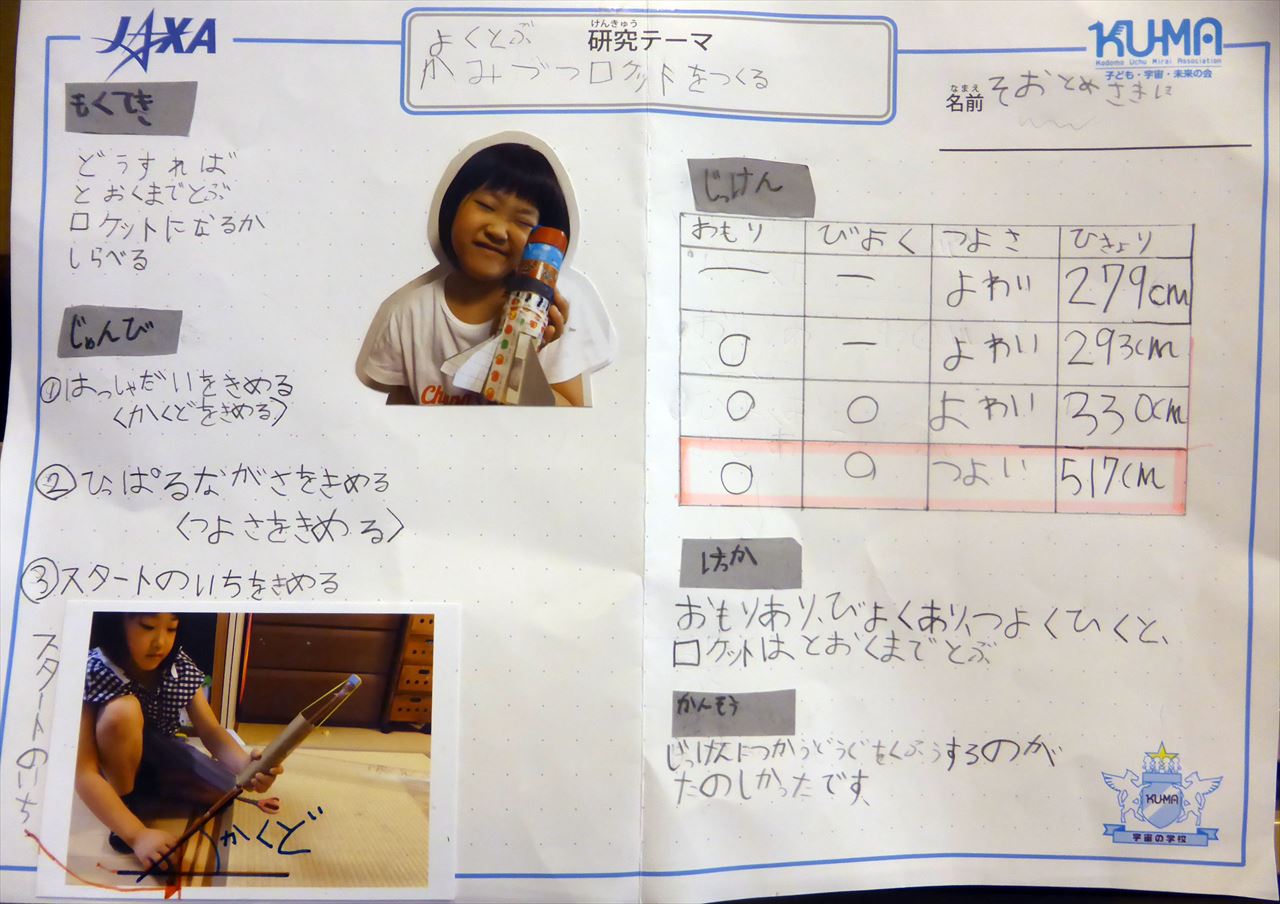 JAXA
よくとぶ
けんきゅう
研究テーマ
かみづつロケットをつくる
KU-MA
Kodomo Uchu Mirai Association
子ども・宇宙・未来の会
なまえ
名前
そおとめさきに
もくてき
どうすれば
とおくまでとぶ
ロケットになるか
しらべる
じゅんび
①はっしゃだいをきめる
〈かくどをきめる〉
②ひっぱるながさをきめる
〈つよさをきめる〉
③スタートのいちをきめる
スタートのいち
かくど
じっけん
おもり びよく つよさ ひきょり
ー ー よわい 279cm
○ ー よわい 293cm
○ ○ よわい 330cm
○ ○ つよい 517cm
けっか
おもりあり、びよくあり、つよくひくと、
ロケットはとおくまでとぶ
かんそう
じっけんにつかうどうぐをくふうするのが
たのしかったです、
KU-MA
宇宙の学校